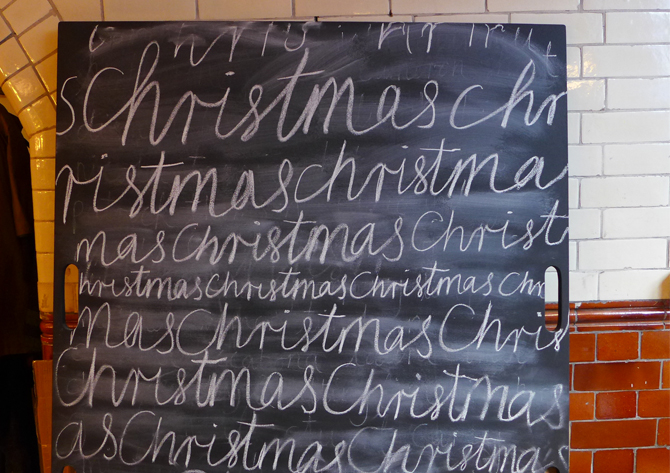 sChristmas Chr
ristmaschristma
masChristmas Christ
hristmasChristmasChristmas Chr
mas Christmas Chris
Christmas Christmas
as Christmas Christmas